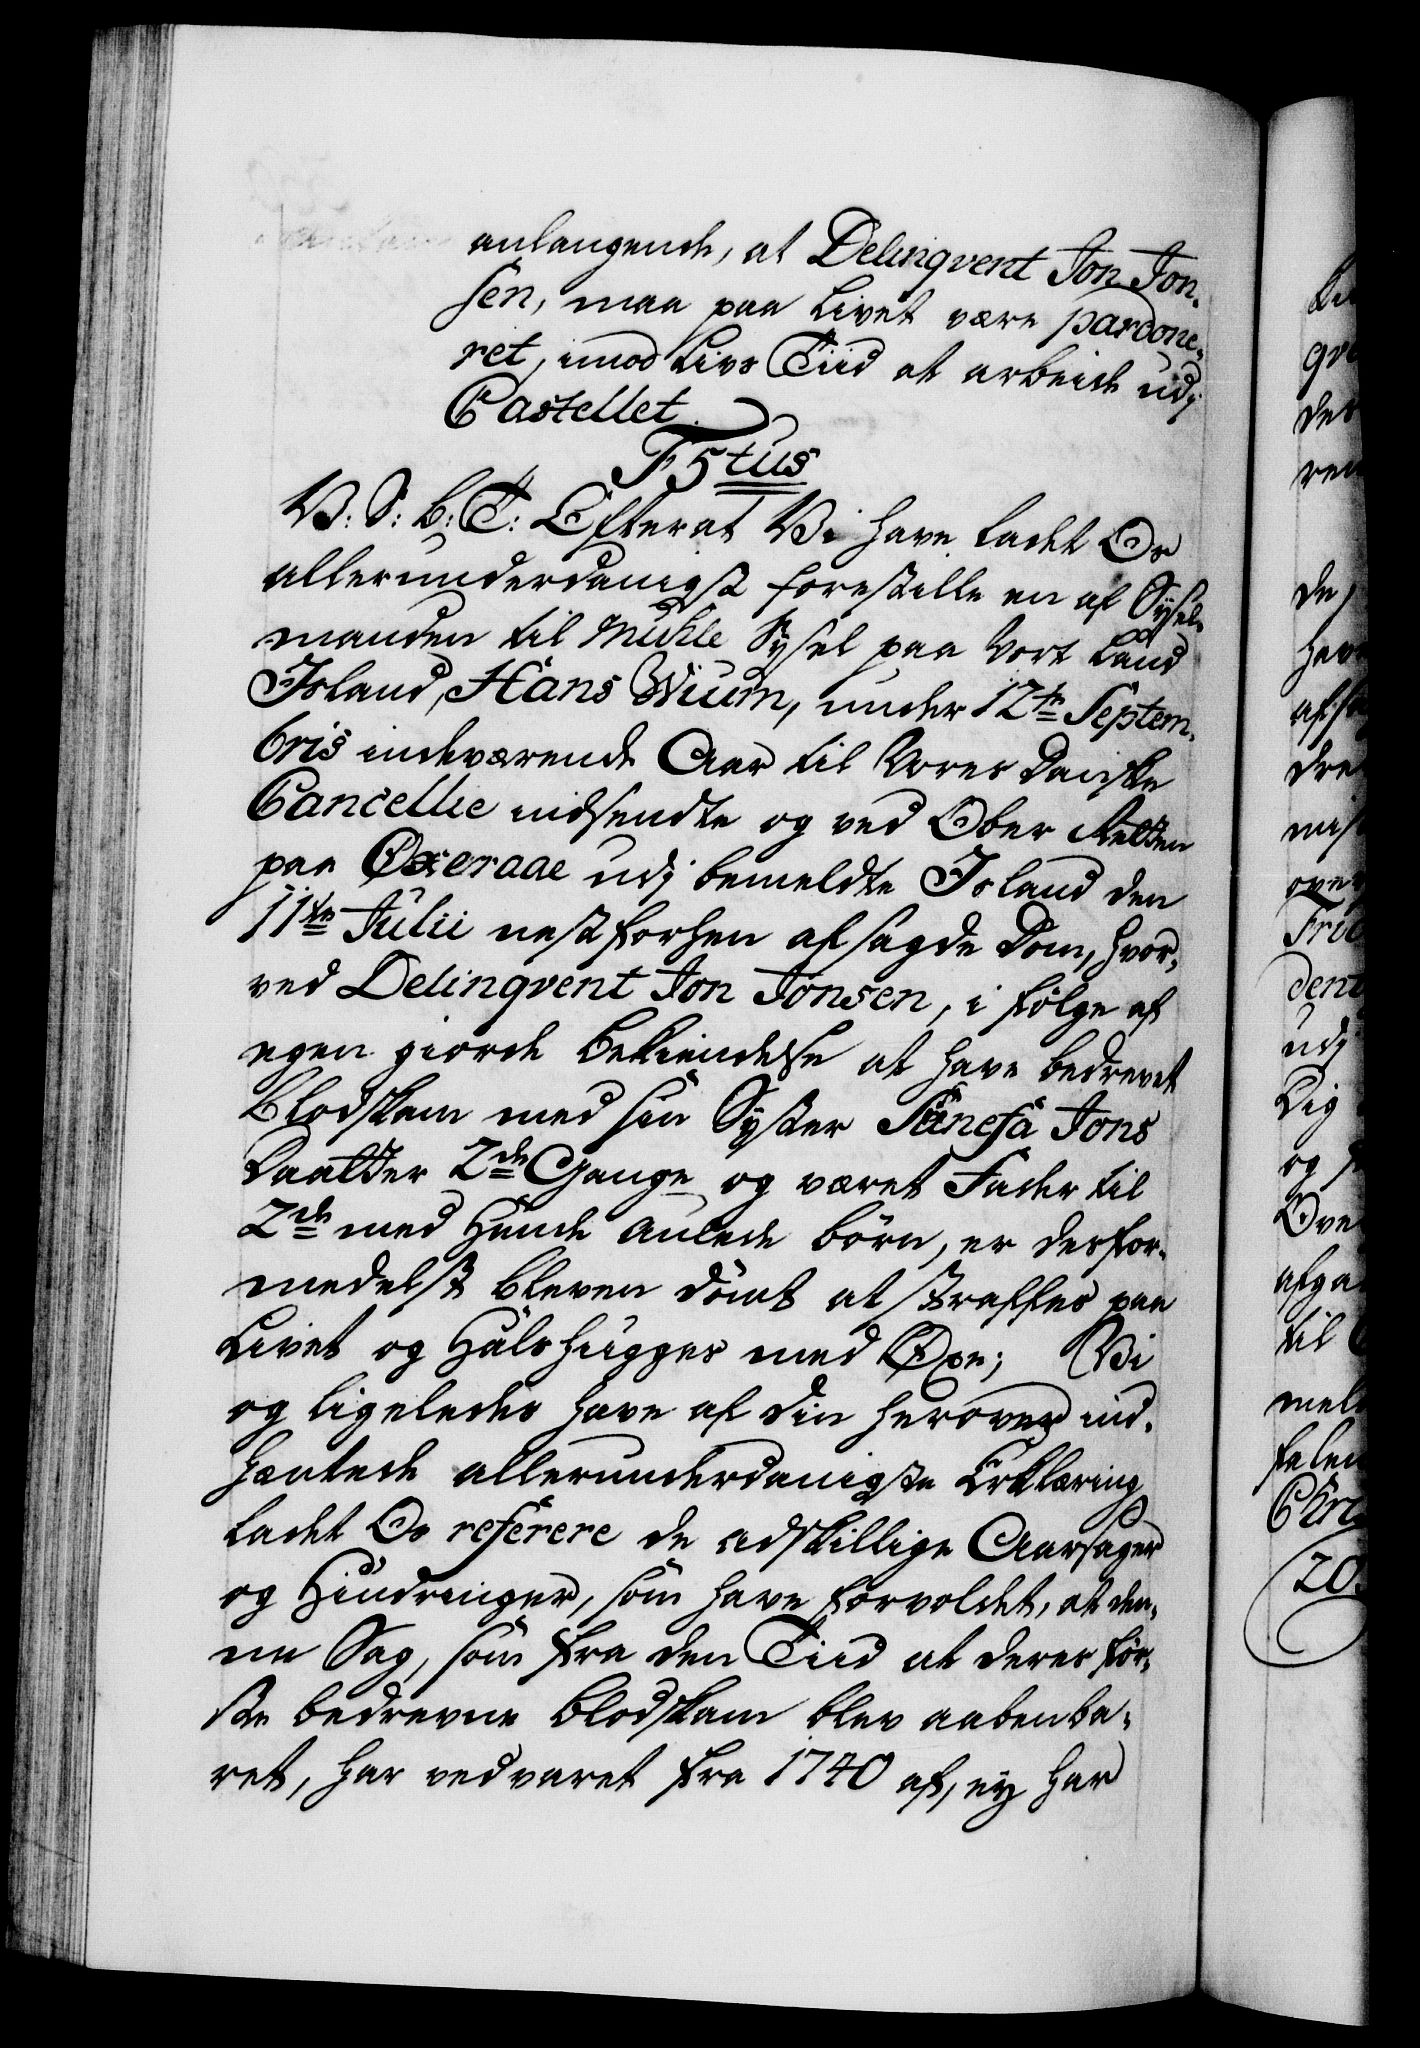 anlangende, at Delinqvent Jon Jon-
sen, maa paa Livet være pardone-
ret, imod Livs Tiid at arbeide udj
Castellet.
F5tus
V: S: B: T: Efterat Vi have ladet Os
allerunderdanigst forestille en af Syssel-
manden til Muhle Syssel paa Vort Land
Island, Hans Wium, under 12te Septem-
bris indeværende Aar til Vores Danske
Cancellie indsendte og ved Ober Retten
paa Øxeraae udj bemeldte Island den
11te Julii nestforhen afsagde Dom, hvor-
ved Delinqvent Jon Jonsen, i følge af
egen giorde Bekiendelse at have bedrevet
Blodskam med sin Syster Sunefa Jons
Daatter 2de Gange og været Fader til
2de med hende aulede børn, er desfor-
medelst bleven dömt at straffes paa
Livet og Halshugges med Øxe; Vi
og ligeledes have af din herover ind-
hæntede allerunderdanigste Erklæring
ladet Os referere de adskillige Aarsager
og Hindringer, som have forvoldet, at den-
ne Sag, som fra den Tiid at deres för-
ste bedrevne Blodskam blev aabenba-
ret, har vedvaret fra 1740 af, ey har